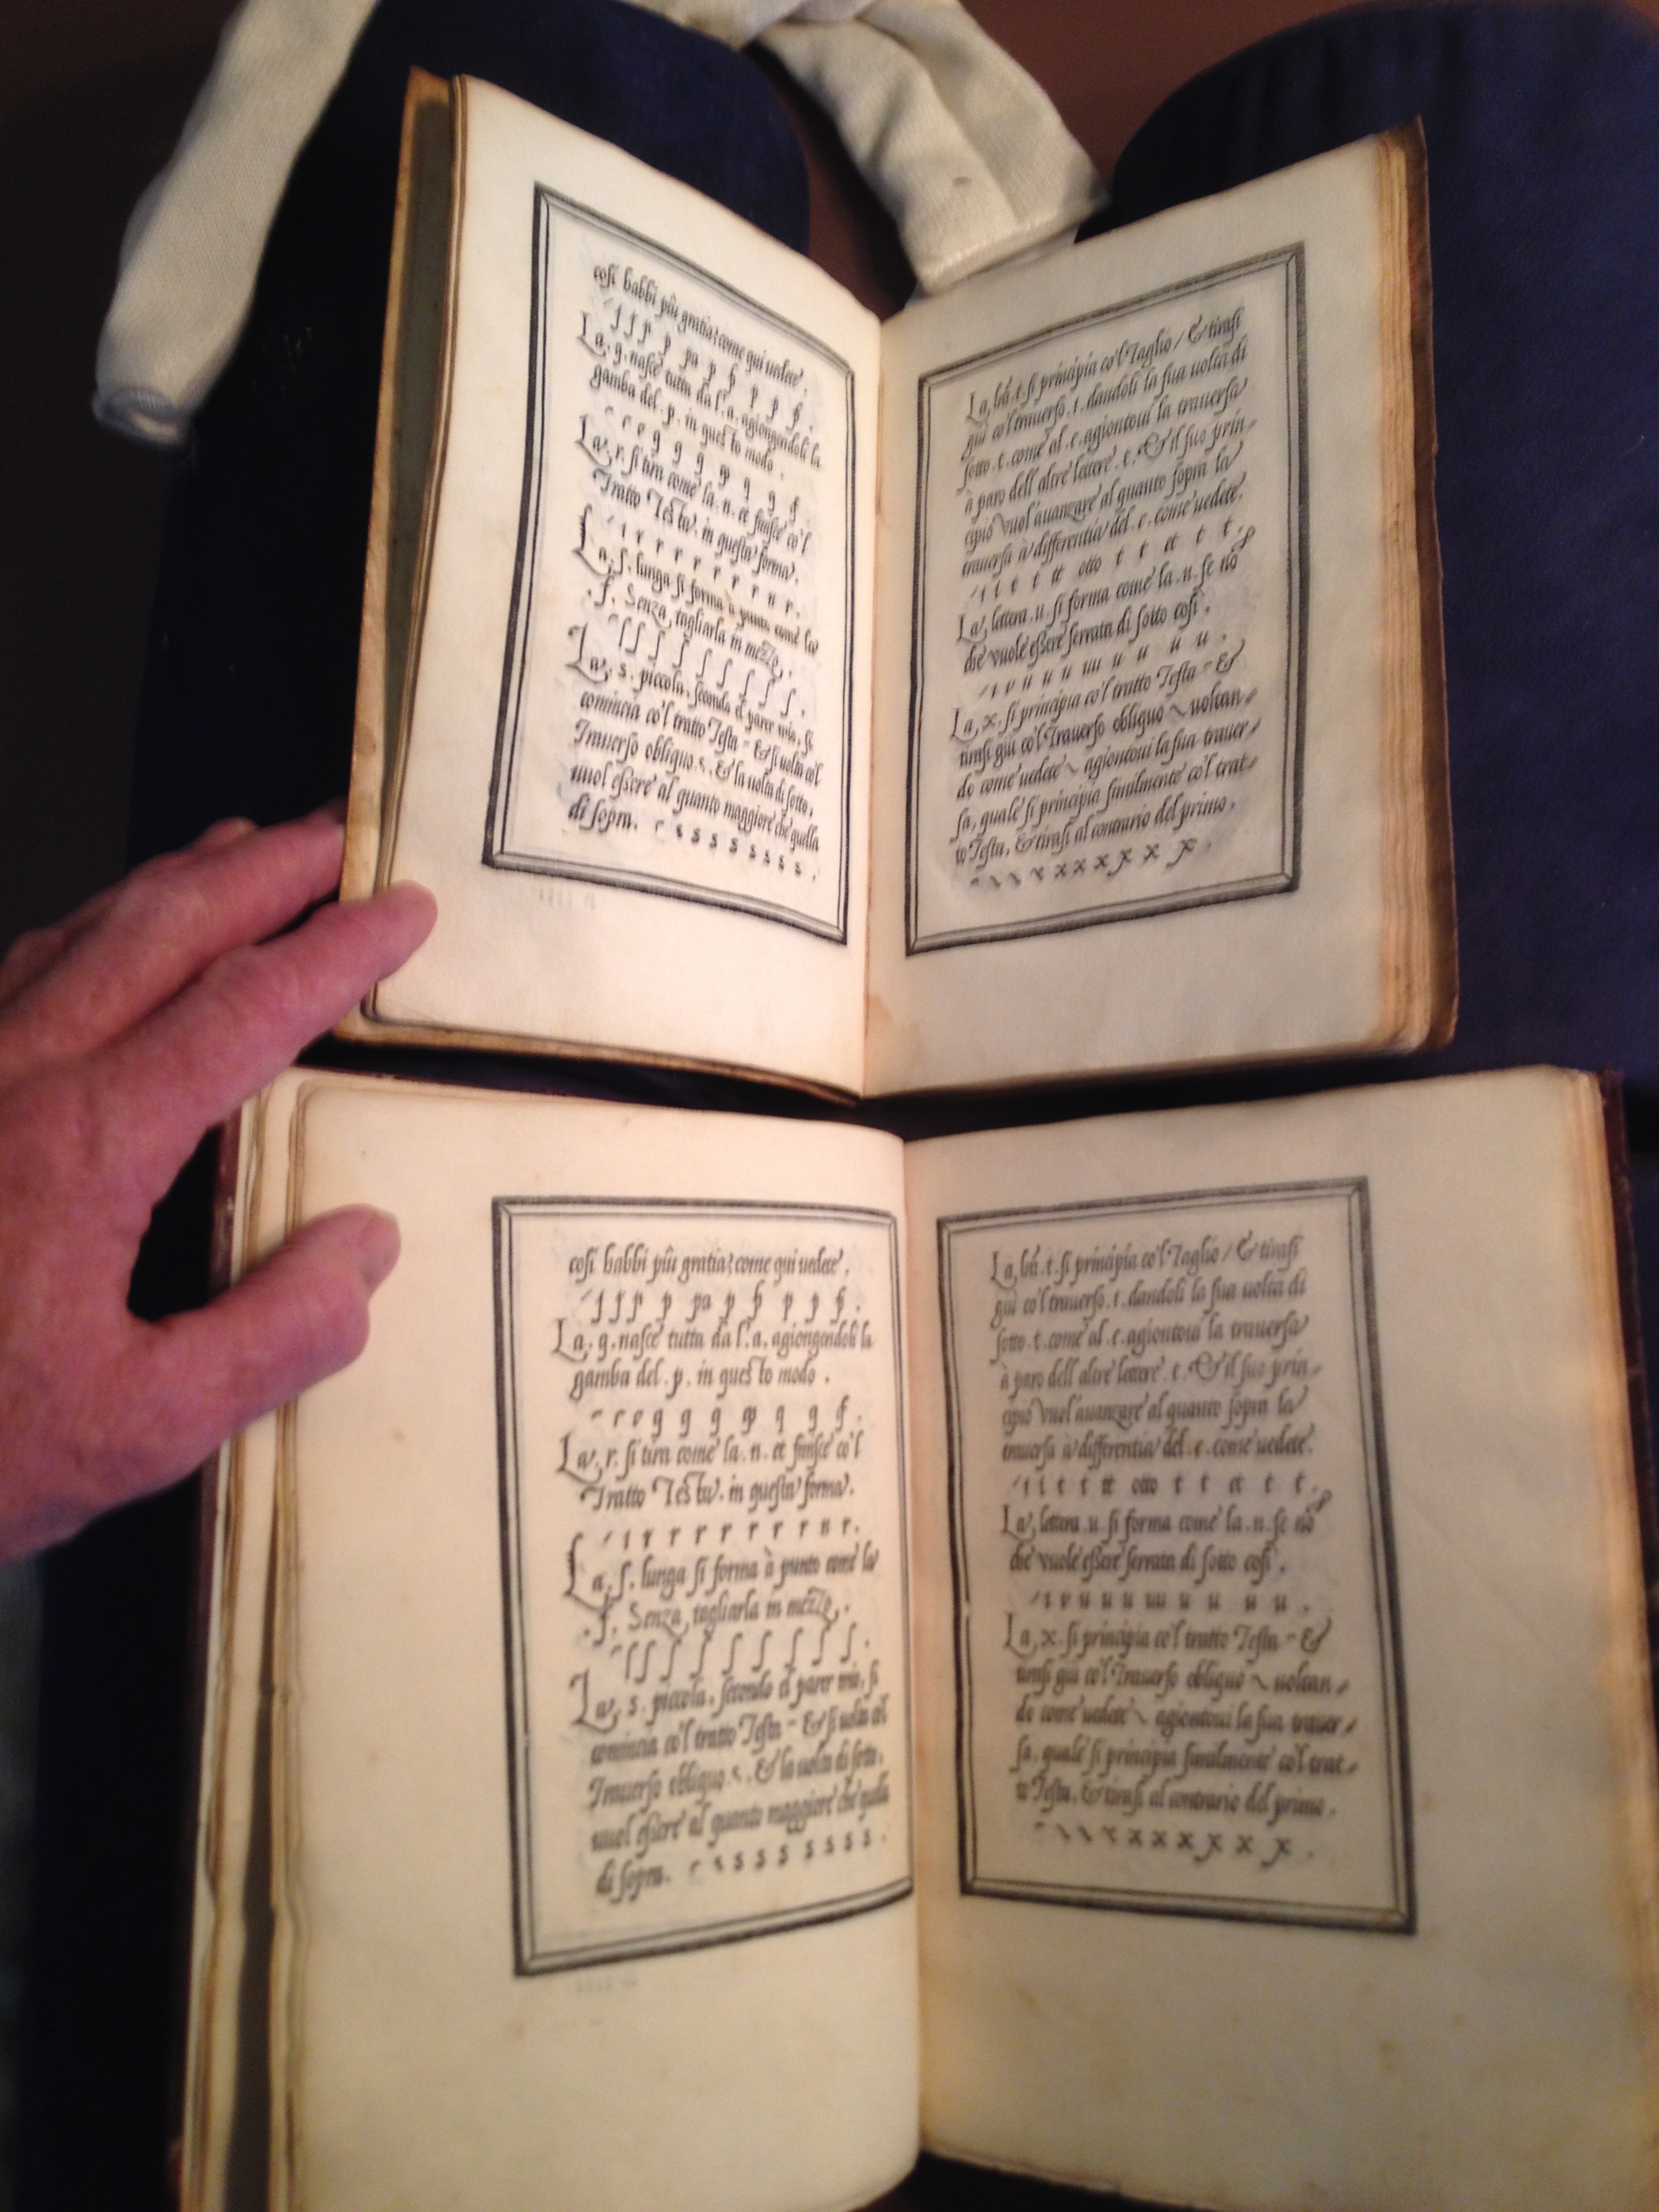 cosi babbi più gratia; come qui uedete.
ſ ſ p p pa p p p p p.
La. g. nasce tutta da l'. a. agiongendoli la
gamba del. p. in questo modo.
- r o g g g gp q g g.
La. r. si tira come la. n. et finisce co'l
Tratto Testu. in questa forma.
ı r r r r r r r n r.
La. ſ. lunga si forma à punto come la
. f. Senza tagliarla in mezzo.
ſ ſ ſ ſ ſ ſ ſ ſ.
La. s. piccola, secondo el parer mio, si
comincia co'l tratto Testa - & si uolta co'l
Trauerso obliquo. , & la uolta di sotto,
uuol essere al quanto maggiore che quella
di sopra. s s s s s s s.
La, bā. t. si principia co'l Taglio / & tirasi
giù co'l trauerso. ı. dandoli la sua uolta di
sotto. t. come al. c. agiontoui la trauersa
à paro dell altre lettere. t. & il suo prin-
cipio vuol auanzare al quanto sopra la
trauersa à differentia del. c. come uedete.
ı t t tt otto t t ct t t.
La, lettera. u. si forma come la. n. se nō
che vuole essere serrata di sotto cosi.
ı u u u uu u u u u.
La, x. si principia co'l tratto Testa - &
tirasi giù co'l Trauerso obliquo \ uoltan-
do come uedete \ agiontoui la sua trauer-
sa, quale si principia similmente co'l trat-
to Testa, & tirasi al contrario del primo.
- \ \ x x x x x x x.
cosi babbi più gratia; come qui uedete.
ſ ſ p p pa p p p p p.
La. g. nasce tutta da l'. a. agiongendoli la
gamba del. p. in questo modo.
- r o g g g gp q g g.
La. r. si tira come la. n. et finisce co'l
Tratto Testu. in questa forma.
ı r r r r r r r n r.
La. ſ. lunga si forma à punto come la
. f. Senza tagliarla in mezzo.
ſ ſ ſ ſ ſ ſ ſ ſ.
La. s. piccola, secondo el parer mio, si
comincia co'l tratto Testa - & si uolta co'l
Trauerso obliquo. , & la uolta di sotto,
uuol essere al quanto maggiore che quella
di sopra. s s s s s s s.
La, bā. t. si principia co'l Taglio / & tirasi
giù co'l trauerso. ı. dandoli la sua uolta di
sotto. t. come al. c. agiontoui la trauersa
à paro dell altre lettere. t. & il suo prin-
cipio vuol auanzare al quanto sopra la
trauersa à differentia del. c. come uedete.
ı t t tt otto t t ct t t.
La, lettera. u. si forma come la. n. se nō
che vuole essere serrata di sotto cosi.
ı u u u uu u u u u.
La, x. si principia co'l tratto Testa - &
tirasi giù co'l Trauerso obliquo \ uoltan-
do come uedete \ agiontoui la sua trauer-
sa, quale si principia similmente co'l trat-
to Testa, & tirasi al contrario del primo.
- \ \ x x x x x x x.